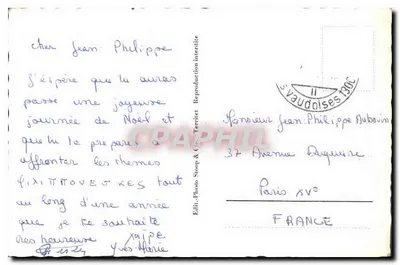 cher Jean Philippe
J'espère que tu auras
passé une joyeuse
journée de Noël et
que tu te prépares à
affronter les thèmes
tout
au long d'une année
que je te souhaite
très heureuse
Yves Marie
Edit. Photo
Reproduction interdite
II
Vaudoises 1306
CARTHAPHIL
Monsieur Jean-Philippe
37 Avenue
Paris XV°
FRANCE